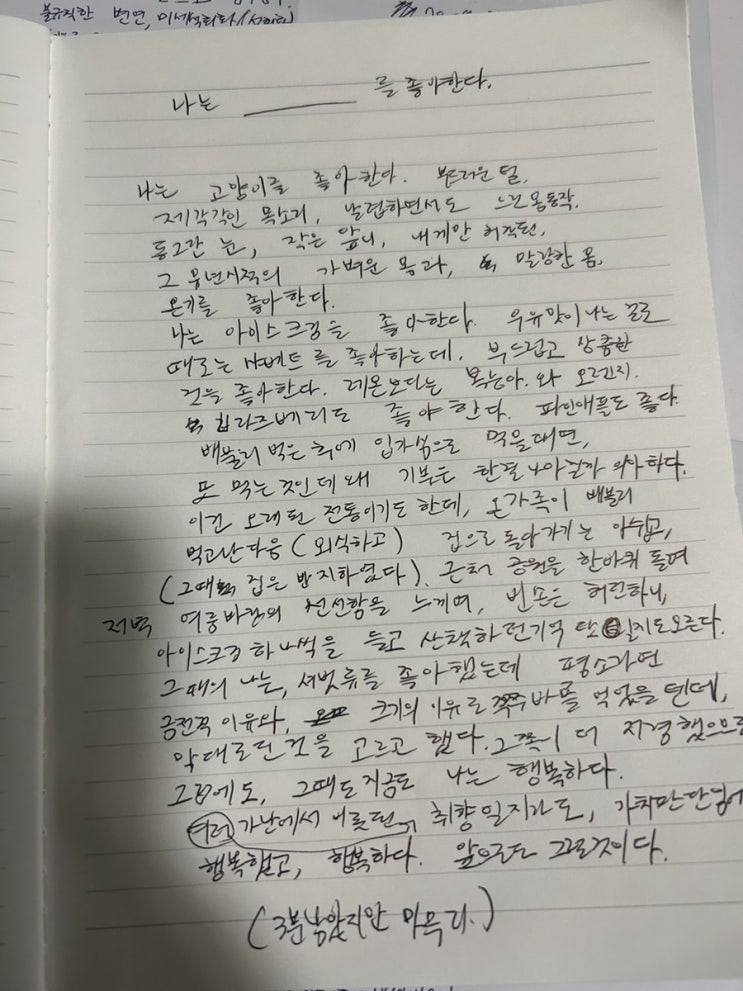 불규칙한 번연,
나는 ______ 를 좋아한다.
나는 고양이를 좋아한다. 부드러운 털.
제각각인 목소리, 날렵하면서도 느린 몸동작.
동그란 눈, 작은 앞니, 내게만 허락된,
그 유년시절의 가벼운 몸과, 말랑한 몸.
온기를 좋아한다.
나는 아이스크림을 좋아한다. 우유맛이 나는 걸로
때로는 샤베트를 좋아하는데, 부드럽고 상큼한
것을 좋아한다. 레몬보다는 복숭아와 오렌지.
라즈베리도 좋아한다. 파인애플도 좋다.
배불리 먹은 후에 입가심으로 먹을때면,
또 먹는 것인데 왜 기분은 한결 나아질까 의아하다.
이건 오래된 전통이기도 한데, 온가족이 배불리
먹고난다음 (외식하고) 집으로 돌아가기는 아쉽고,
(그때 집은 반지하였다). 근처 공원을 한바퀴 돌며
저녁 여름바람의 선선함을 느끼며, 빈손은 허전하니,
아이스크림 하나씩을 들고 산책하던기억 일지도모른다.
그때의 나는, 셔벗류를 좋아했는데 평소라면
금전적 이유와, 크기의 이유로 쭈쭈바를 먹었을 텐데,
막대로된것을 고르고 했다. 그쪽이 더 저렴했으므로
그럼에도, 그때도 지금도 나는 행복하다.
어린 가난에서 비롯된 취향일지라도,
행복했고, 행복하다. 앞으로도 그럴것이다.
(3분남았지만 마무리.)